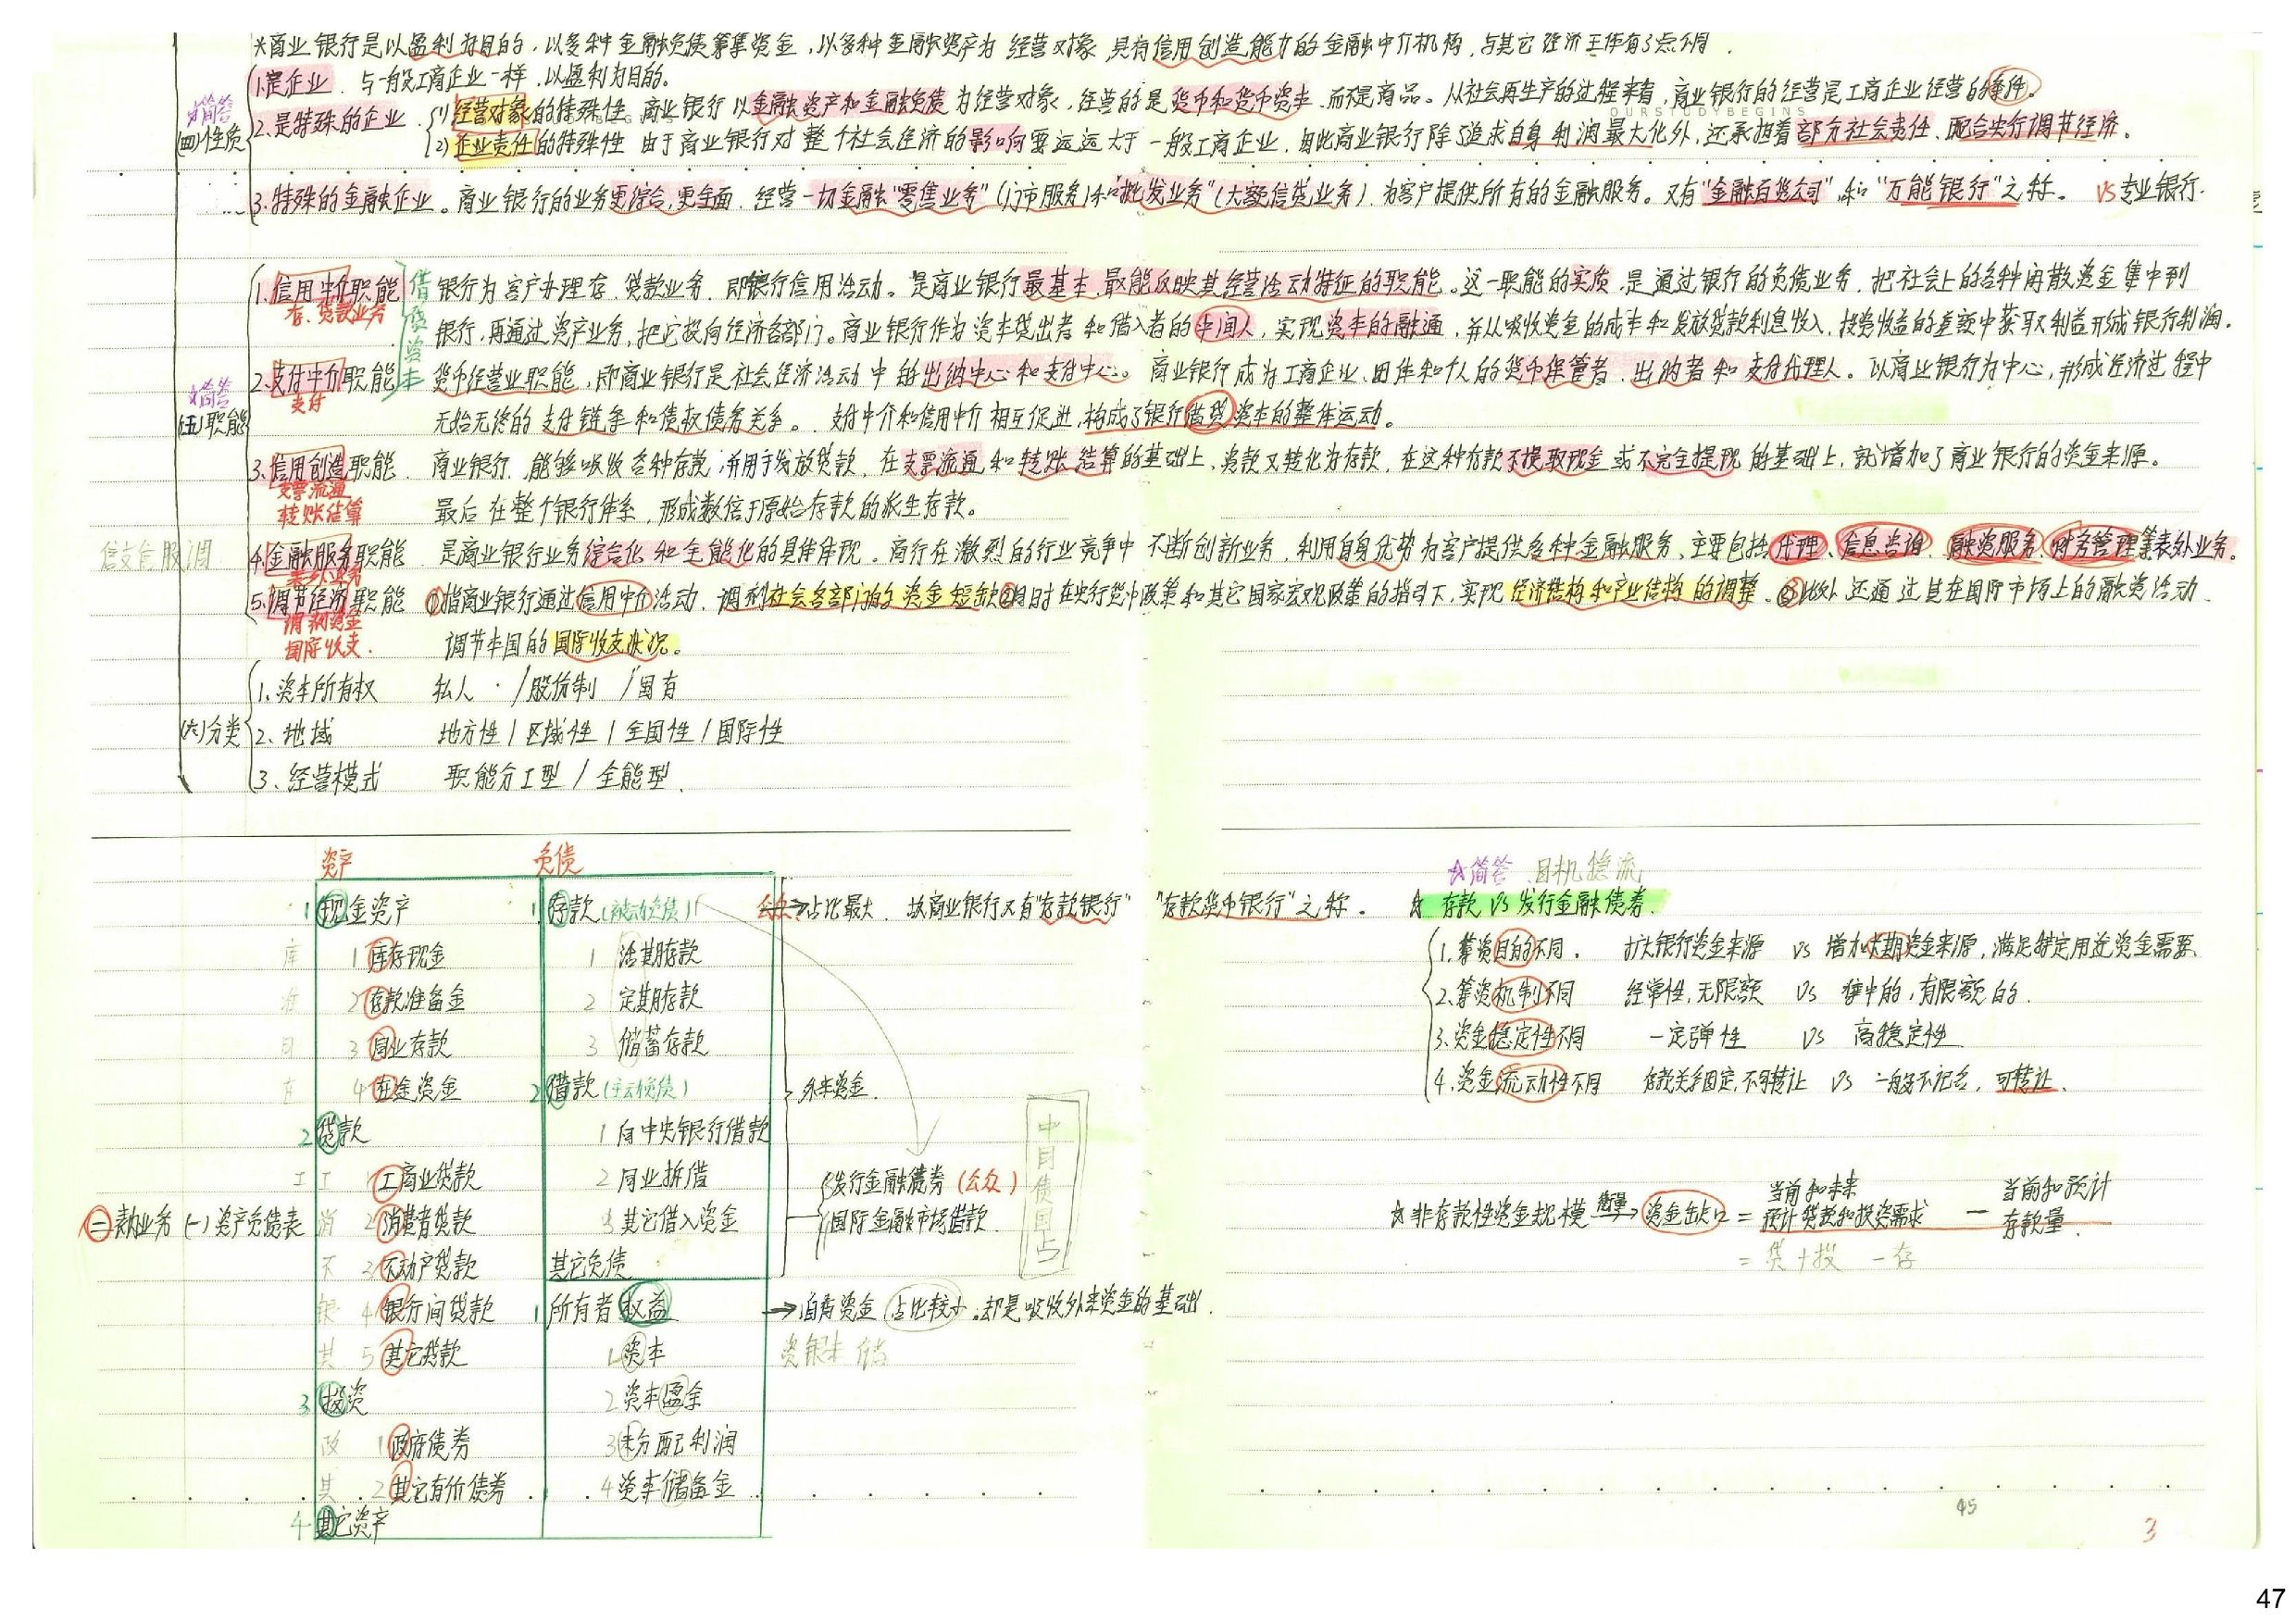 *商业银行是以盈利为目的,以多种金融负债筹集资金,以多种金融资产为 经营对象,具有信用创造能力的金融中介机构,与其它经济主体有3点不同.
1.是企业. 与一般工商企业一样,以盈利为目的。
☆简答
(四)性质
2.是特殊的企业. (1)经营对象的特殊性 商业银行以金融资产和金融负债为经营对象,经营的是货币和货币资本.而不是商品。从社会再生产的过程来看,商业银行的经营是工商企业经营的条件。
OURSTUDYBEGINS
(2)企业责任的特殊性 由于商业银行对整个社会经济的影响要远远大于一般工商企业,因此商业银行除了追求自身利润最大化外,还承担着部分社会责任、配合央行调节经济。
3.特殊的金融企业。商业银行的业务更综合,更全面.经营一切金融"零售业务"(门市服务)和"批发业务"(大额信贷业务).为客户提供所有的金融服务。又有"金融百货公司",和"万能银行"之称。 VS专业银行.
1.信用中介职能 银行为客户办理存、贷款业务.即银行信用活动。是商业银行最基本.最能反映其经营活动特征的职能.这一职能的实质.是通过银行的负债业务,把社会上的各种闲散资金集中到
存、贷款业务
借贷资本
银行,再通过资产业务,把它投向经济各部门。商业银行作为资本贷出者和借入者的中间人,实现资本的融通,并从吸收资金的成本和发放贷款利息收入,投资收益的差额中获取利益形成银行利润.
☆简答
(五)职能
2.支付中介职能 货币经营业职能,即商业银行是社会经济活动中的出纳中心和支付中心。 商业银行成为工商企业、团体和个人的货币保管者、出纳者和支付代理人。以商业银行为中心,形成经济过程中
支付
无始无终的支付链条和债权债务关系。.支付中介和信用中介相互促进,构成了银行借贷资本的整体运动。
3.信用创造职能. 商业银行.能够吸收各种存款,并用于发放贷款.在支票流通和转账结算的基础上,贷款又转化为存款,在这种存款不提取现金或不完全提现的基础上,就增加了商业银行的资金来源。
支票流通
转账结算
最后在整个银行体系,形成数倍于原始存款的派生存款。
信支信服调
4.金融服务职能 是商业银行业务综合化和全能化的具体体现.商行在激烈的行业竞争中不断创新业务,利用自身优势为客户提供各种金融服务.主要包括代理、信息咨询、融资服务、财务管理等表外业务。
表外业务
5.调节经济职能 ①指商业银行通过信用中介活动.调剂社会各部门的资金短缺②同时在央行货币政策和其它国家宏观政策的指引下,实现经济结构和产业结构的调整.③此外还通过其在国际市场上的融资活动
调剂资金
国际收支.
调节本国的国际收支状况。
(六)分类
1.资本所有权 私人 /股份制 /国有
2、地域 地方性/区域性/全国性/国际性
3、经营模式 职能分工型/全能型.
资产 负债
1现金资产 1存款(被动负债) 公众→占比最大.故商业银行又有"存款银行" "存款货币银行"之称.
库 1库存现金 1 活期存款
准 2存款准备金 2 定期存款
同 3同业存款 3 储蓄存款
在 4在途资金 2借款(主动负债) 外来资金.
2贷款 1向中央银行借款
工 1工商业贷款 2同业拆借 发行金融债券(公众)
㊁ 表内业务 (一)资产负债表
消 2消费者贷款 3其它借入资金 国际金融市场借款.
中同债国占
不 3不动产贷款 其它负债
银 4银行间贷款 1所有者权益 →自有资金(占比较少).却是吸收外来资金的基础.
其 5其它贷款 1资本
3投资 2资本盈余
政 1政府债券 3未分配利润
其 2其它有价债券 4资本储备金
4其它资产
☆简答 目机稳流
☆ 存款 VS 发行金融债券.
1.筹资目的不同. 扩大银行资金来源 VS 增加长期资金来源,满足特定用途资金需要
2.筹资机制不同 经常性,无限额 VS 集中的,有限额的.
3.资金稳定性不同 一定弹性 VS 高稳定性
4.资金流动性不同 存款关系固定,不可转让 VS 一般不记名,可转让.
☆非存款性资金规模 衡量→ 资金缺口 = 当前和未来预计贷款和投资需求 — 当前和预计存款量.
= 贷+投 -存
45
3
47